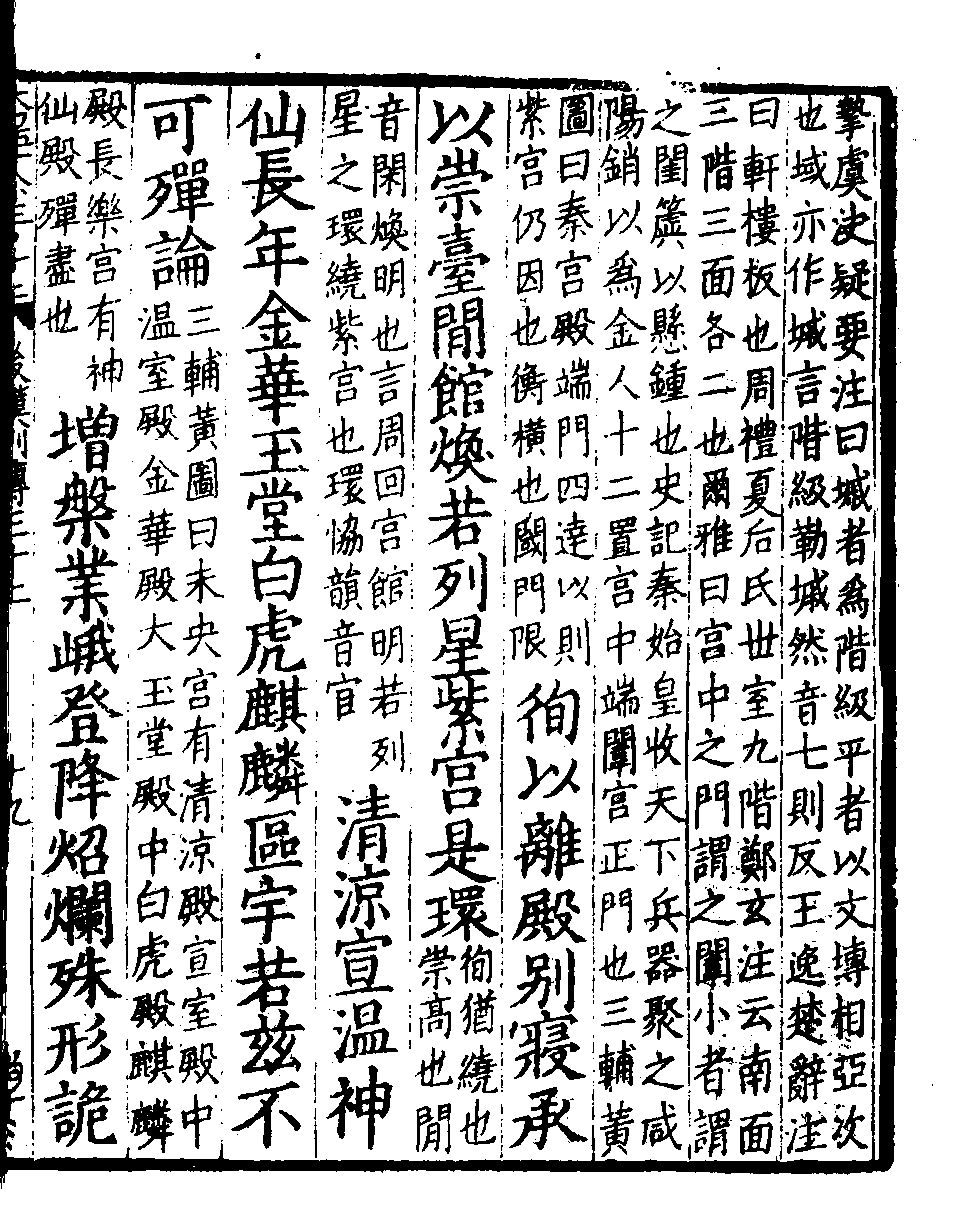 摯虞决疑要注曰城者為階級平者以文塼相亞次
也域亦作城言階級勒城然音七則反王逸楚辭注
曰軒樓板也周禮夏后氏丗室九階鄭玄注云南面
三階三面各二也爾雅曰宫中之門謂之闈小者謂
之閨簴以懸鍾也史記秦始皇收天下兵器聚之咸
陽銷以為金人十二置宫中端闈宫正門也三輔黄
圖曰秦宫殿端門四逹以則
紫宫仍因也衡横也閾門限
徇以離殿别寢承
以崇臺閒館焕若列星紫宫是環
徇猶繞也
崇髙也閒
音閑焕明也言周回宫館明若列
星之環繞紫宫也環恊韻音宦
清涼宣温神
仙長年金華玉堂白虎麒麟區宇若兹不
可殫論
三輔黄圖曰未央宫有清涼殿宣室殿中
温室殿金華殿大玉堂殿中白虎殿麒麟
殿長樂宫有神
仙殿殫盡也
増槃業峨登降炤爛殊形詭